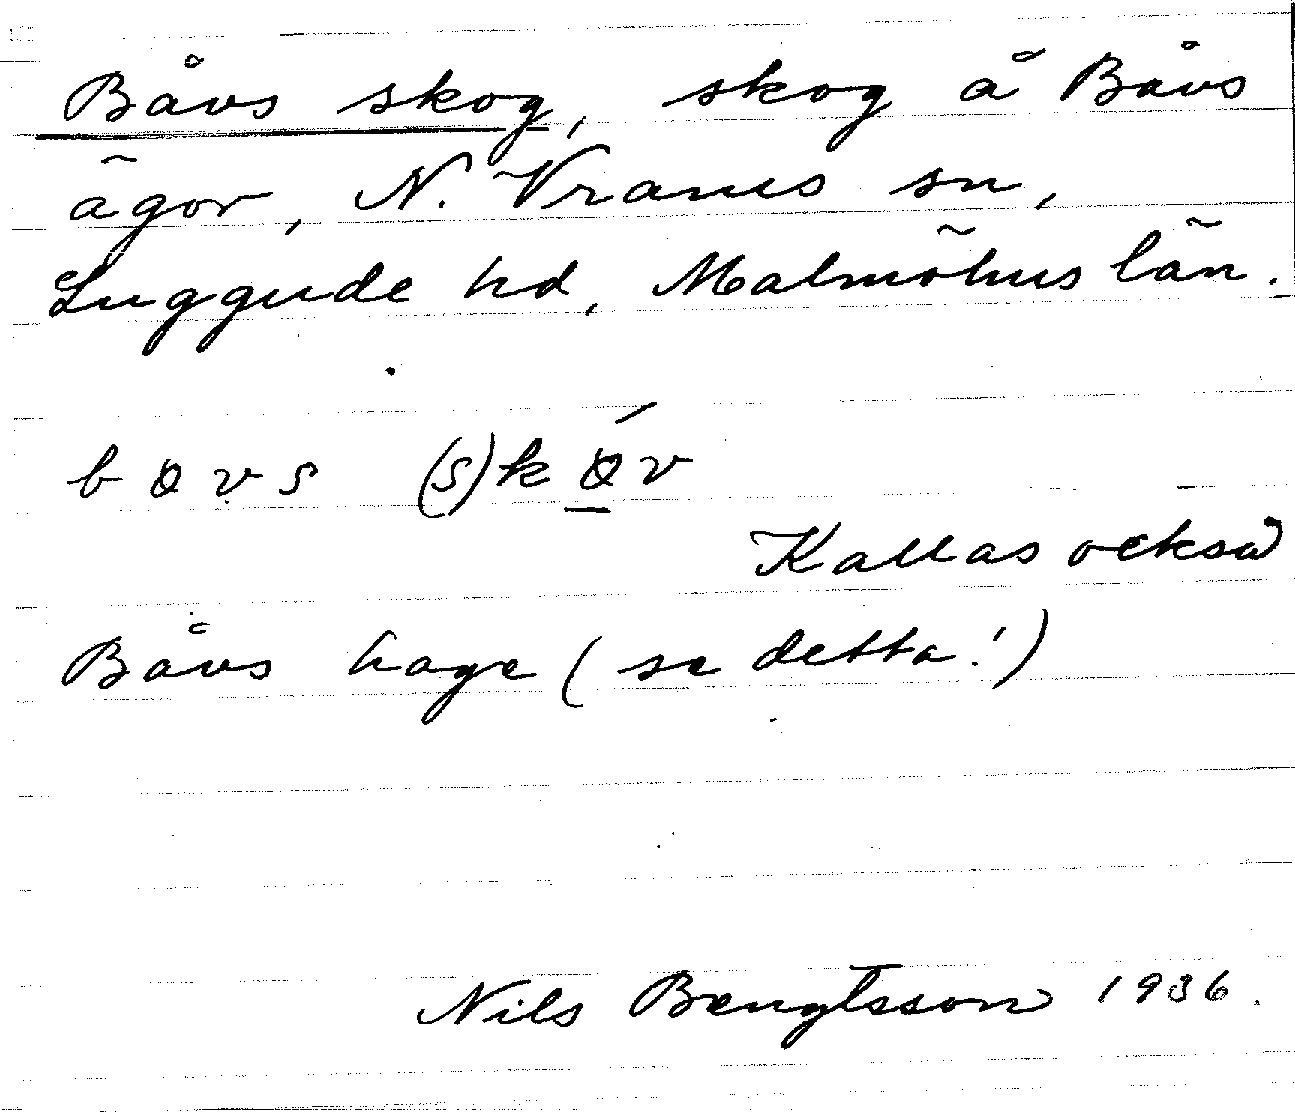 Båvs skog, skog å Båvs
ägor, N. Vrams sn,
Luggude hd, Malmöhus län.
bɵvs (s)kɵ́v
Kallas också
Båvs hage (se detta!)
Nils Bengtsson 1936.